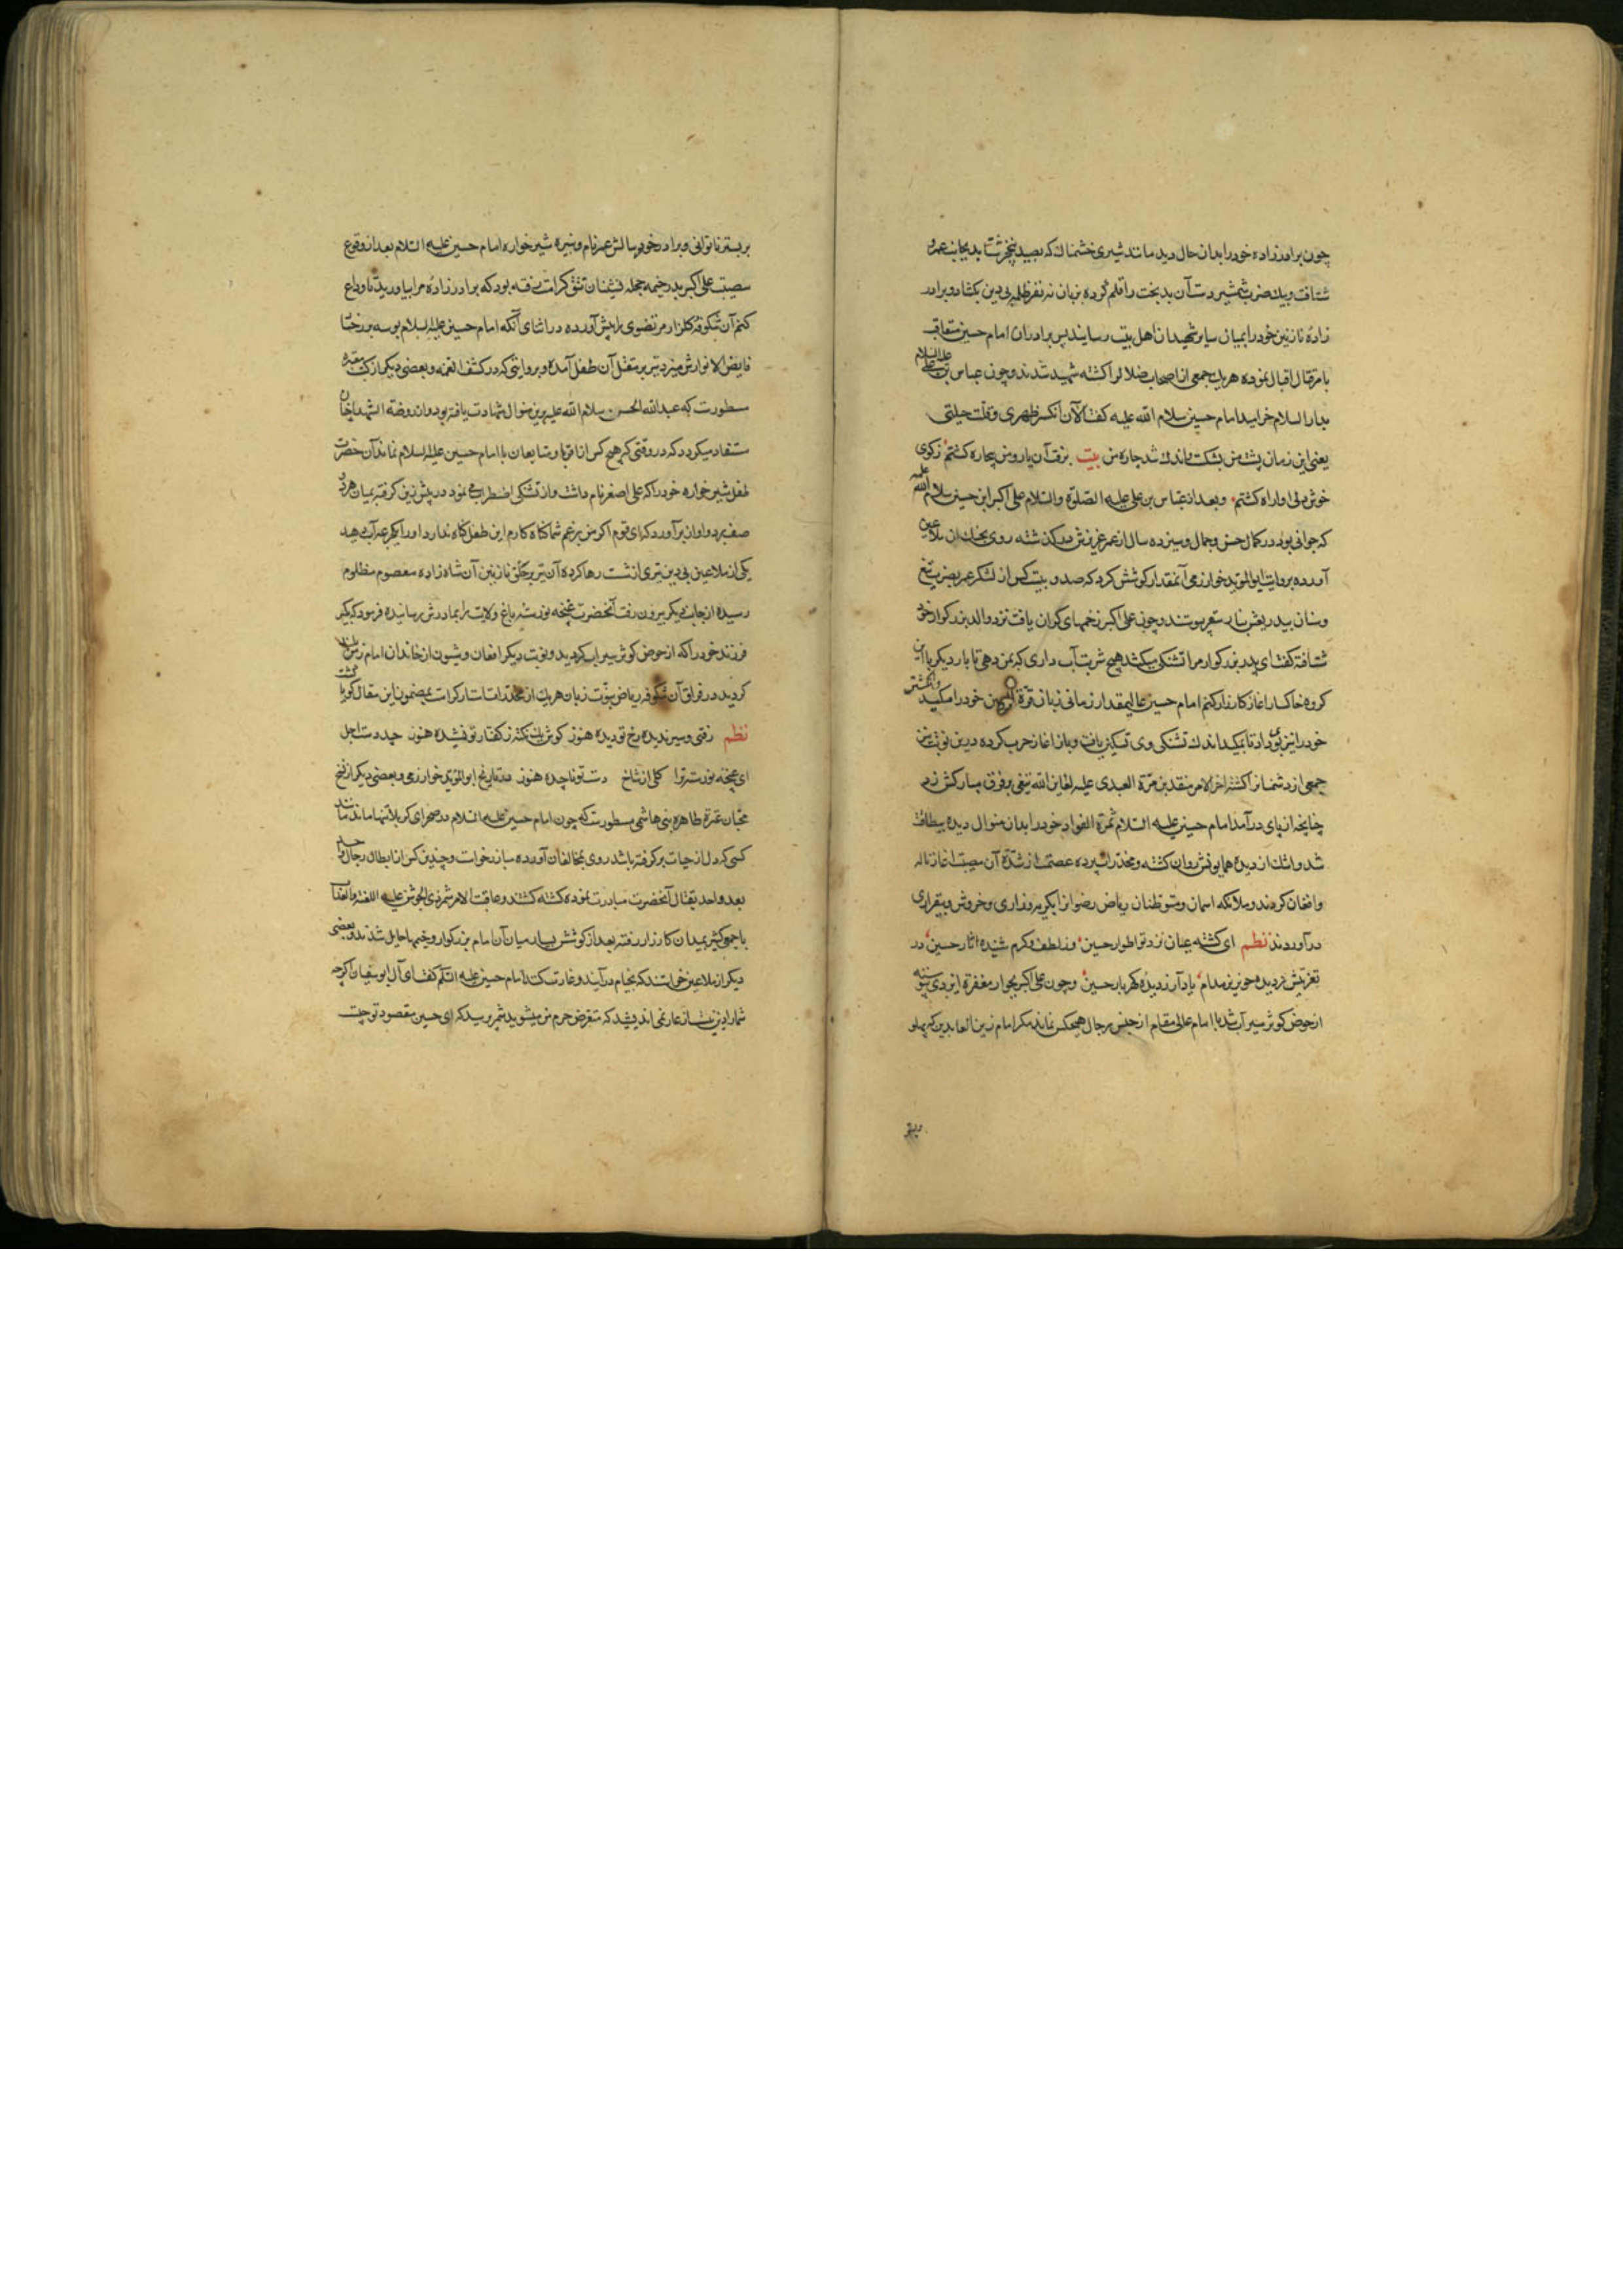 چون برادرزاده خود را بدان حال دید مانند شیری خشمناك که بصید نخچیر شتابد بجانب عمرو
شتافت و بیك ضرب شمشیر دست آن بدبخت را قلم کرده بی دین بکشاد و برادر
زاده نازنین خود را بمیان سایر شهیدان اهل بیت رسانید پس برادران امام حسین متعاقب
بامر قتال اقبال نموده هر یك جمعی از اصحاب ضلال را کشته شهید شدند و چون عباس بن علی علیه السلام
بدار السلام خرامید امام حسین سلام الله علیه گفت الآن انکسر ظهری و قلت حیلتی
یعنی این زمان پشت من بشکست و اندك شد چاره من بیت
خوش بی او و بعد از عباس بن علی علیه الصلوة والسلام علی اکبر ابن حسین سلام الله علیه
که جوانی بود در کمال حسن و جمال و سیزده سال از عمر عزیزش درگذشته روی بجنك ان ملاعین
آورده بروایت ابو الموید خوارزمی آنمقدار کوشش کرد که صد و بیست کس از لشکر عمر بضرب تیغ
و سنان بیدریغش بنار سقر پیوستند و چون علی اکبر زخمهای گران یافت نزد والد بزرگوار خود
شتافته گفت ای پدر بزرگوار مرا تشنگی میکشد هیچ شربت آب داری که بمن دهی تا بار دیگر با این
گروه خاکسار اغاز کارزار کنم امام حسین عالیمقدار زمانی زبان قرة العین خود را مکید و انکشتر
خود را نیز بوی داد تا بمکید اندك تشنگی وی تسکین یافت و باز اغاز حرب کرده درین نوبت نیز
جمعی از دشمنان را کشته اخر الامر منقذ بن مرة العبدی علیه لعاین الله تیغی بر فرق مبارکش زد
چنانچه از پای درآمد امام حسین علیه السلام ثمرة الفواد خود را بدان منوال دیده بیطاقت
شد و اشك از دیده همایونش روان گشته و مخدرات پرده عصمت از شدة آن مصیبت اغاز ناله
و افغان کردند و ملائکه اسمان و متوطنان ریاض رضوان را بگریه و زاری و خروش و بیقراری
درآوردند نظم ای گشته عیان نزد تو اطوار حسین وز لطف و کرم شنیده اثار حسین در
تعزیتش ز دیده خون ریز مدام یاد آر ز دیده گهربار حسین و چون علی اکبر بجوار مغفرة ایزدی پیوسته
از حوض کوثر سیراب شد با امام عالی مقام از جنس رجال هیچکس نماند مگر امام زین العابدین که پهلو
بر بستر ناتوانی و برادر خورد سالش عمر نام و نبیره شیرخواره امام حسین علیه السلام بعد از وقوع
مصیبت علی اکبر بدر خیمه رفته بود که برادرزاده مرا بیاورید تا وداع
کنم آن شکوفه گلزار مرتضوی را پیش آورده در اثنای آنکه امام حسین علیه السلام بوسه بر رخسار
فایض الانوارش میزد تیر بر مقتل آن طفل آمده و بروایتی که در کشف الغمه و بعضی دیگر از کتب معتبره
مسطورست که عبدالله الحسن سلام الله علیه برین منوال شهادت یافته بود و از روضة الشهدا چنان
مستفاد میگردد که در وقتی که هیچ کس از اقربا و متابعان با امام حسین علیه السلام نماند آن حضرت
طفل شیرخواره خود را که علی اصغر نام داشت و از تشنگی اضطراب می نمود در پیش زین گرفته بمیان هر دو
صف برد و اواز برآورد که ای قوم اگر من بزعم شما گناه کارم این طفل گناه ندارد او را یکجرعه آب دهید
یکی از ملاعین بی دین تیری از شست رها کرده آن تیر بر حلق نازنین آن شاه زاده معصوم مظلوم
رسیده از جانب دیگر بیرون رفت آنحضرت غنچه نورسته باغ ولایت را بمادرش رسانیده فرمود که بگیر
فرزند خود را که از حوض کوثر سیراب گردید و نوبت دیگر افغان و شیون از خاندان امام
گردید در فراق آن شکوفه ریاض نبوت زبان هر یك از مخدرات استار کرامت بمضمون این مقال گویا گشت
نظم رفتی و سیر ندیده رخ تو دیده هنوز گوش یك نکته ز گفتار تو نشنیده هنوز چید دست اجل
ای غنچه نورسته ترا گلی از شاخ دست تو ناچیده هنوز در تاریخ ابو الموید خوارزمی و بعضی دیگر از نسخ
محبان عترة طاهره بنی هاشمی مسطورست که چون امام حسین علیه السلام در صحرای کربلا تنها ماند مانند
کسی که دل از حیات برگرفته باشد روی بمخالفان آورده مبارز خواست و چندین کس از ابطال رجال واحد
بعد واحد بقتال آنحضرت مبادرت نموده کشته گشتند و عاقبت الامر شمر ذی الجوشن علیه اللعنة والعذاب
با جمعی کثیر بمیدان کارزار رفته بعد از کوشش بسیار میان آن امام بزرگوار و خیمها حایل شدند و بعضی
دیگر از ملاعین خواستند که بخیام درآیند و غارت کنند امام حسین علیه السلام گفت ای آل ابو سفیان اگرچه
شما را دین نیست از عار نمی اندیشید که متعرض حرم من میشوید شمر پرسید که ای حسین مقصود تو چیست